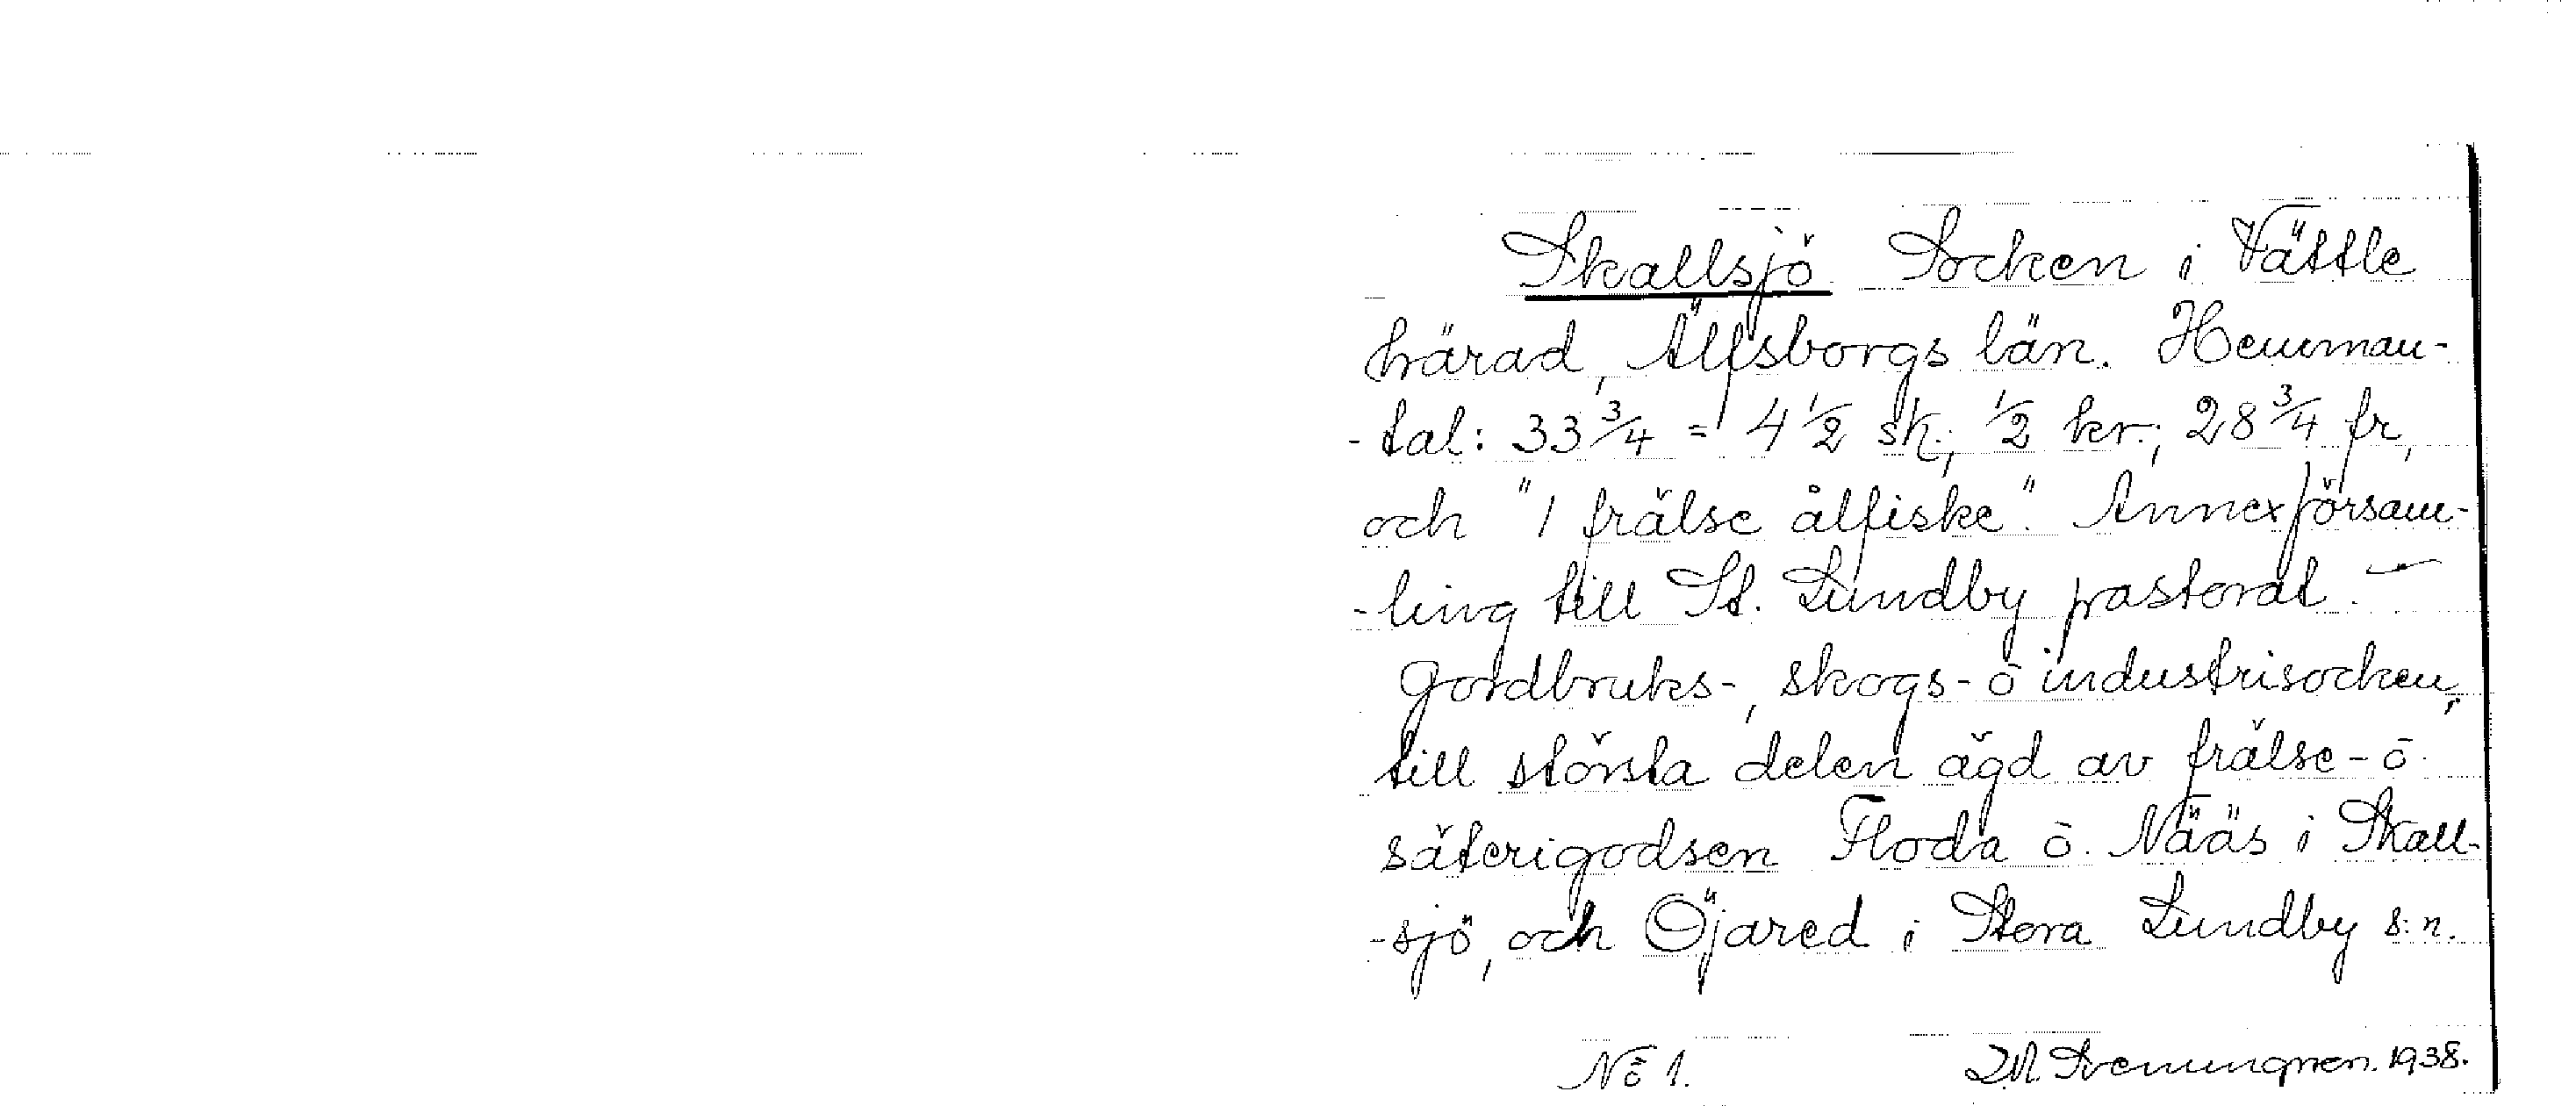 Skallsjö Socken i Vättle
härad, Älfsborgs län. Hemman-
-tal: 33 3/4 = 4 1/2 sk., 1/2 kr., 28 3/4 fr,
och "1 frälse ålfiske". Annexförsam-
-ling till St. Lundby pastorat. -
Jordbruks-, skogs- ō industrisocken,
till största delen ägd av frälse- ō
säterigodsen Floda ō. Nääs i Skall-
-sjö, och Öjared i Stora Lundby s:n.
No 1. 1938.